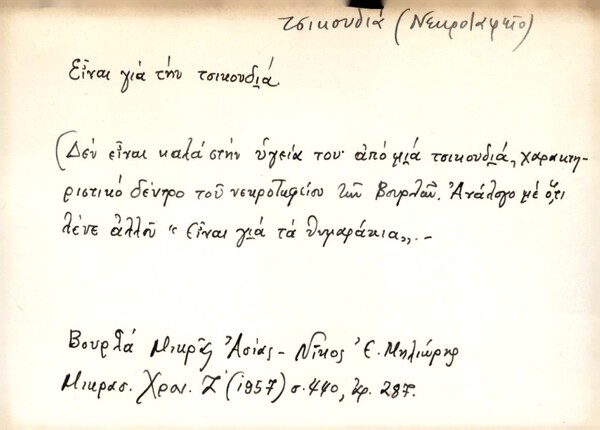 τσικουδιά (Νεκροταφεῖο)
Εἶναι γιά τήν τσικουδιά.
(Δέν εἶναι καλά στήν ὑγεία του· ἀπό μιά τσικουδιά, χαρακτη-
ριστικό δέντρο τοῦ νεκροταφείου τῶν Βουρλῶν. Ἀνάλογο μέ ὅ,τι
λένε ἀλλοῦ « εἶναι γιά τά θυμαράκια„. -
Βουρλά Μικρᾶς Ἀσίας - Νῖκος Ἐ. Μηλιώρης
Μικρασ. Χρον. Ζ΄ (1957) σ. 440, ἀρ. 287.